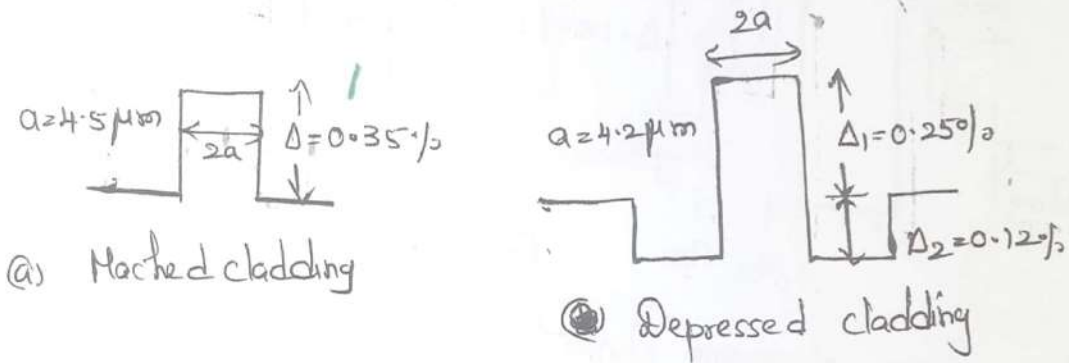 a=4.5 μm
2a
Δ=0.35%
(a) Mached cladding
2a
a=4.2 μm
Δ₁=0.25%
Δ₂=0.12%
Depressed cladding